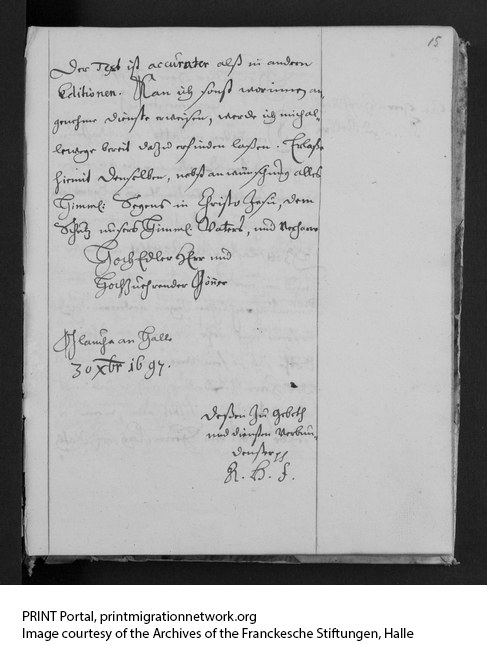 15
Der Text ist accurater, alß in andern
Editionen. Kan ich sonst worinnen an,
genehme Dienste erweisen, werde ich mich al,
lewege bereit dazu erfinden laßen. Erlaße
hiemit Denselben, nebst anwünschung alles
Himml: Segens in Christo Jesu, dem
Schutz unsers Himml. Vaters, und verharre
HochEdler Herr und
Hochzuehrender Gönner
Glaucha an Halle
30 Xbr 1697.
Deßen zu Gebeth
und diensten verbun,
denster
A. H. F.
PRINT Portal, printmigrationnetwork.org
Image courtesy of the Archives of the Franckesche Stiftungen, Halle